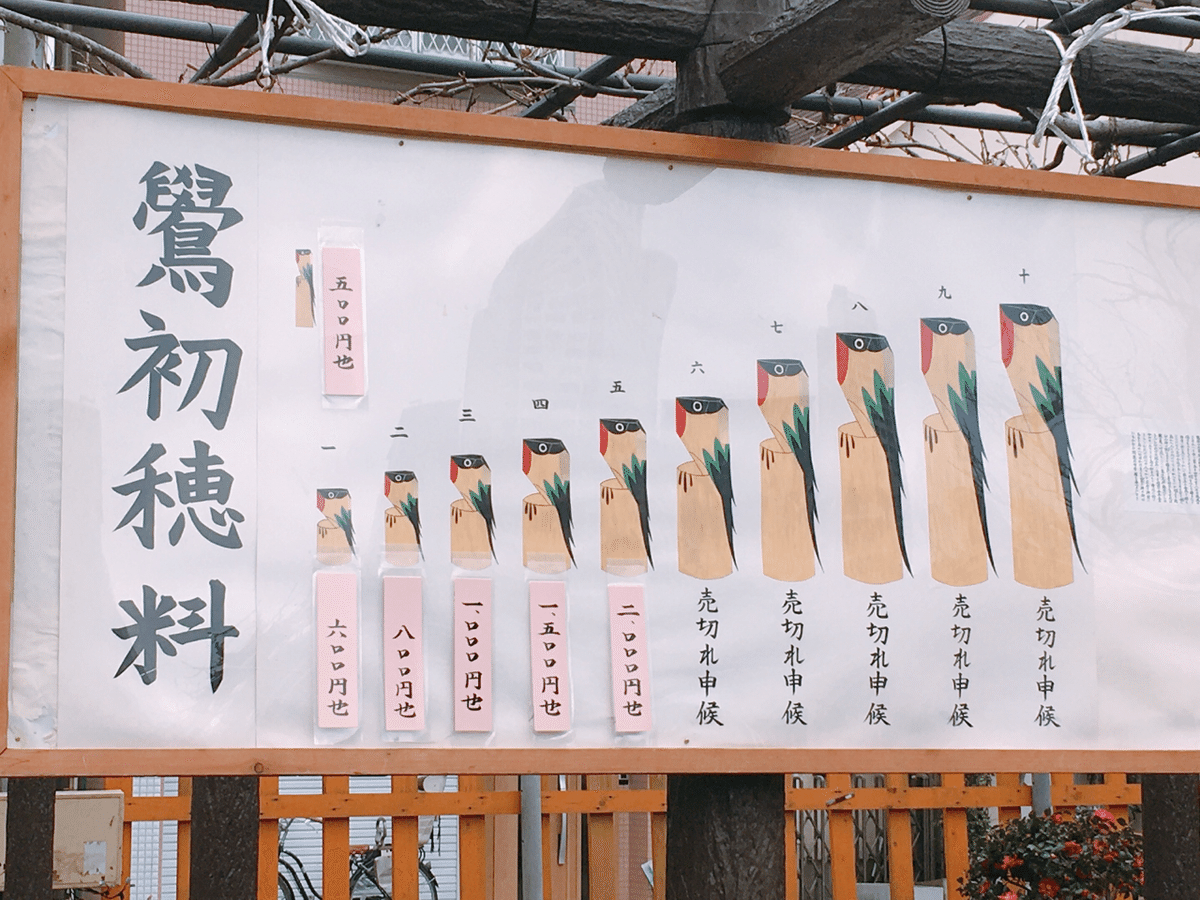 鷽初穂料
五〇〇円也
一
二
三
四
五
六
七
八
九
十
六〇〇円也
八〇〇円也
一、〇〇〇円也
一、五〇〇円也
二、〇〇〇円也
売切れ申候
売切れ申候
売切れ申候
売切れ申候
売切れ申候